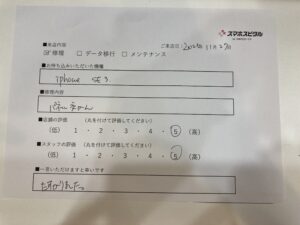 スマホスピタル
■来店内容 ご来店日：2022年11月27日
☑修理 □データ移行 □メンテナンス
■お持ち込みいただいた機種
iphone SE3
■修理内容
■店舗の評価 （丸を付けて評価してください）
（低） 1 ・ 2 ・ 3 ・ 4 ・ 5 （高）
■スタッフの評価 （丸を付けて評価してください）
（低） 1 ・ 2 ・ 3 ・ 4 ・ 5 （高）
■一言いただけますと幸いです
たすかりました。